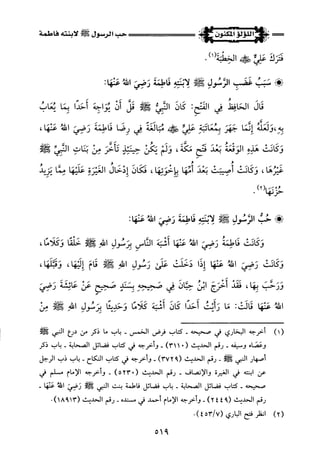 اللؤلؤ المكنون
حب الرسول ﷺ لابنته فاطمة
فَتَرَكَ عَلِيٌّ ﷺ الخِطْبَةَ(١).
سَبَبُ غَضَبِ الرَّسُولِ ﷺ لِابْنَتِهِ فَاطِمَةَ رَضِيَ اللهُ عَنْهَا:
قَالَ الحَافِظُ فِي الفَتْحِ: كَانَ النَّبِيُّ ﷺ قَلَّ أَنْ يُوَاجِهَ أَحَدًا بِمَا يُعَابُ
بِهِ، وَلَعَلَّهُ إِنَّمَا جَهَرَ بِمُعَاتَبَةِ عَلِيٍّ ﷺ مُبَالَغَةً فِي رِضَا فَاطِمَةَ رَضِيَ اللهُ عَنْهَا،
وَكَانَتْ هَذِهِ الوَقْعَةُ بَعْدَ فَتْحِ مَكَّةَ، وَلَمْ يَكُنْ حِينَئِذٍ تَأَخَّرَ مِنْ بَنَاتِ النَّبِيِّ ﷺ
غَيْرُهَا، وَكَانَتْ أُصِيبَتْ بَعْدَ أُمِّهَا بِإِخْوَتِهَا، فَكَانَ إِدْخَالُ الغَيْرَةِ عَلَيْهَا مِمَّا يَزِيدُ
حُزْنَهَا(٢).
حُبُّ الرَّسُولِ ﷺ لِابْنَتِهِ فَاطِمَةَ رَضِيَ اللهُ عَنْهَا:
وَكَانَتْ فَاطِمَةُ رَضِيَ اللهُ عَنْهَا أَشْبَهَ النَّاسِ بِرَسُولِ اللهِ ﷺ خَلْقًا وَكَلَامًا،
وَكَانَتْ رَضِيَ اللهُ عَنْهَا إِذَا دَخَلَتْ عَلَىٰ رَسُولِ اللهِ ﷺ قَامَ إِلَيْهَا، وَقَبَّلَهَا،
وَرَحَّبَ بِهَا، فَقَدْ أَخْرَجَ ابْنُ حِبَّانَ فِي صَحِيحِهِ بِسَنَدٍ صَحِيحٍ عَنْ عَائِشَةَ رَضِيَ
اللهُ عَنْهَا قَالَتْ: مَا رَأَيْتُ أَحَدًا كَانَ أَشْبَهَ كَلَامًا وَحَدِيثًا بِرَسُولِ اللهِ ﷺ مِنْ
(١) أخرجه البخاري في صحيحه ـ كتاب فرض الخمس ـ باب ما ذكر من درع النبي ﷺ
وعصاه وسيفه ـ رقم الحديث (٣١١٠) ـ وأخرجه في كتاب فضائل الصحابة ـ باب ذكر
أصهار النبي ﷺ ـ رقم الحديث (٣٧٢٩) ـ وأخرجه في كتاب النكاح ـ باب ذب الرجل
عن ابنته في الغيرة والإنصاف ـ رقم الحديث (٥٢٣٠) ـ وأخرجه الإمام مسلم في
صحيحه ـ كتاب فضائل الصحابة ـ باب فضائل فاطمة بنت النبي ﷺ رَضِيَ اللهُ عَنْهَا ـ
رقم الحديث (٢٤٤٩) ـ وأخرجه الإمام أحمد في مسنده ـ رقم الحديث (١٨٩١٣).
(٢) انظر فتح الباري (٤٥٣/٧).
٥١٩